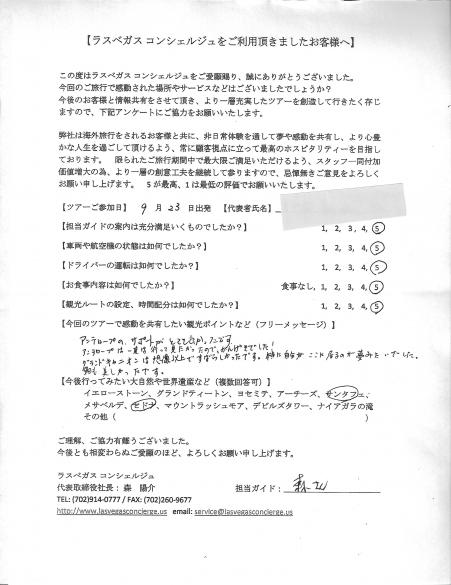 【ラスベガス コンシェルジュをご利用頂きましたお客様へ】
この度はラスベガス コンシェルジュをご愛顧賜り、誠にありがとうございました。
今回のご旅行で感動された場所やサービスなどはございましたでしょうか?
今後のお客様と情報共有をさせて頂き、より一層充実したツアーを創造して行きたく存じ
ますので、下記アンケートにご協力をお願いいたします。
弊社は海外旅行をされるお客様と共に、非日常体験を通して夢や感動を共有し、より心豊
かな人生を過ごして頂けるよう、常に顧客視点に立って最高のホスピタリティーを目指し
ております。 限られたご旅行期間中で最大限ご満足いただけるよう、スタッフ一同付加
価値増大の為、より一層の創意工夫を継続して参りますので、忌憚無きご意見をよろしく
お願い申し上げます。 5が最高、1は最低の評価でお願いいたします。
【ツアーご参加日】 9 月 23 日出発 【代表者氏名】
【担当ガイドの案内は充分満足いくものでしたか?】 1, 2, 3, 4, 5
【車両や航空機の状態は如何でしたか?】 1, 2, 3, 4, 5
【ドライバーの運転は如何でしたか?】 1, 2, 3, 4, 5
【お食事内容は如何でしたか?】 食事なし, 1, 2, 3, 4, 5
【観光ルートの設定、時間配分は如何でしたか?】 1, 2, 3, 4, 5
【今回のツアーで感動を共有したい観光ポイントなど(フリーメッセージ)】
アンテロープの サポートが とても
アンテロープは一度は行って見たかったので、
グランドキャニオンは想像以上ですばらしかったです。特に自分が ここに居るのが夢みたいでした。
美しかったです。
【今後行ってみたい大自然や世界遺産など(複数回答可)】
イエローストーン、グランドティートン、ヨセミテ、アーチーズ、サンタフェ、
メサベルデ、セドナ、マウントラッシュモア、デビルズタワー、ナイアガラの滝
その他( )
ご理解、ご協力有難うございました。
今後とも相変わらぬご愛顧のほど、よろしくお願い申し上げます。
ラスベガス コンシェルジュ
代表取締役社長: 森 陽介 担当ガイド:
TEL: (702)914-0777 / FAX: (702)260-9677
http://www.lasvegasconcierge.us email: service@lasvegasconcierge.us